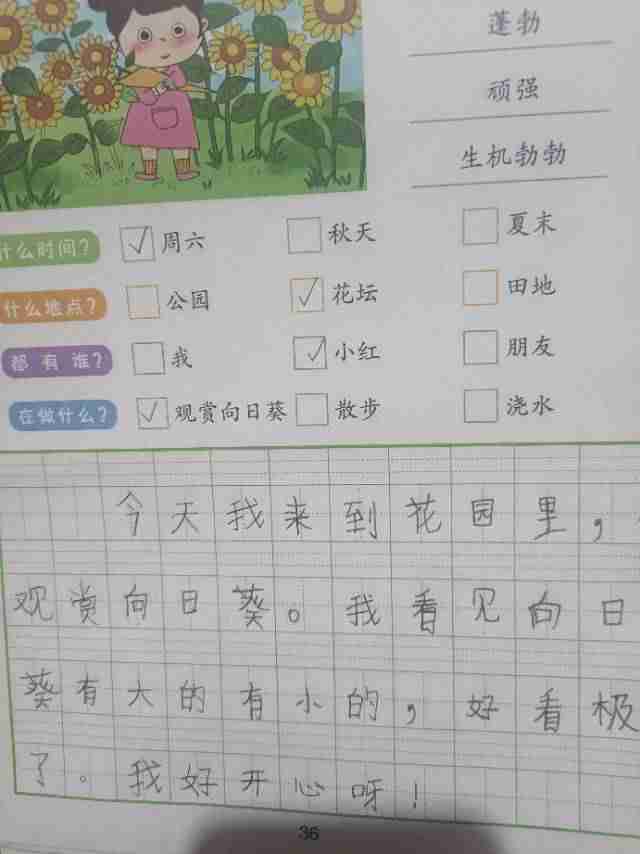 蓬勃
顽强
生机勃勃
什么时间? 周六 秋天 夏末
什么地点? 公园 花坛 田地
都有谁? 我 小红 朋友
在做什么? 观赏向日葵 散步 浇水
今天我来到花园里，
观赏向日葵。我看见向日
葵有大的有小的，好看极
了。我好开心呀！
36